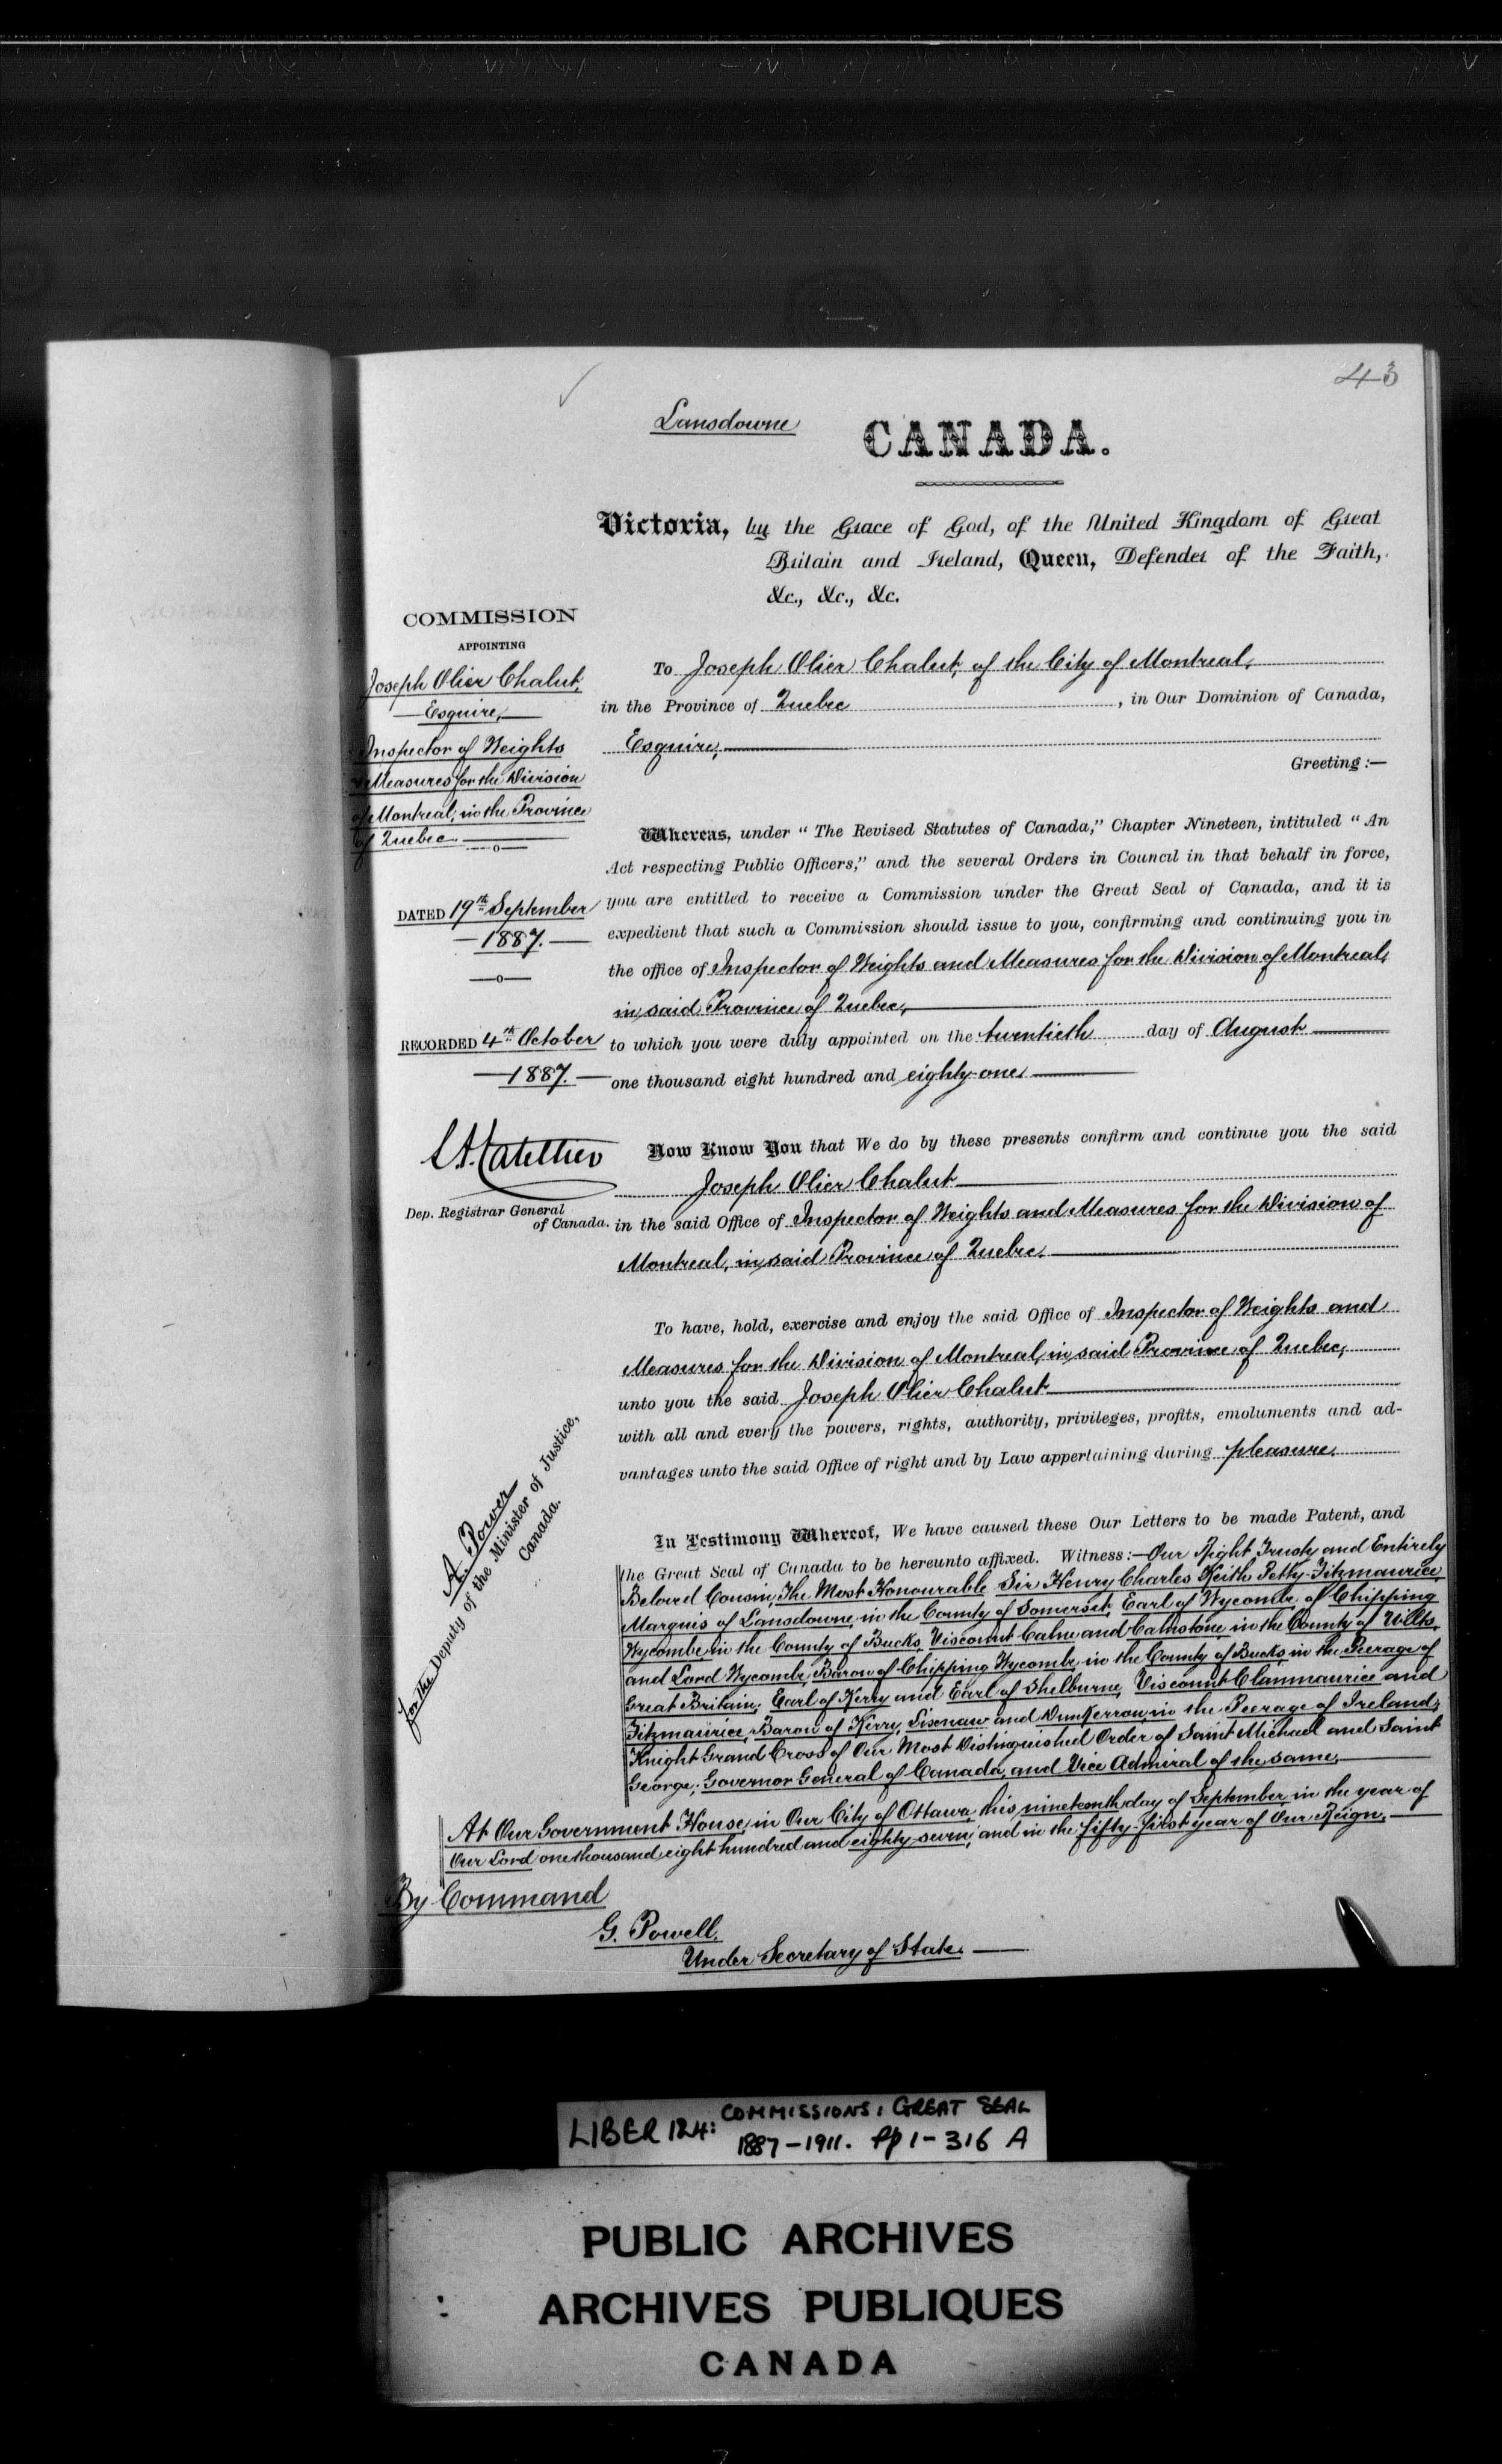 43
Lansdowne
CANADA.
Victoria, by the Grace of God, of the United Kingdom of Great
Britain and Ireland, Queen, Defender of the Faith,
&c., &c., &c.
COMMISSION
APPOINTING
Joseph Olier Chalut,
Esquire,
Inspector of Weights
& Measures for the Division
of Montreal, in the Province
of Quebec
DATED 19th September
1887.
RECORDED 4th October
1887.
Dep. Registrar General
of Canada.
A. Power
for the Deputy of the Minister of Justice,
Canada.
To Joseph Olier Chalut, of the City of Montreal,
in the Province of Quebec, in Our Dominion of Canada,
Esquire,
Greeting :—
Whereas, under "The Revised Statutes of Canada," Chapter Nineteen, intituled "An
Act respecting Public Officers," and the several Orders in Council in that behalf in force,
you are entitled to receive a Commission under the Great Seal of Canada, and it is
expedient that such a Commission should issue to you, confirming and continuing you in
the office of Inspector of Weights and Measures for the Division of Montreal,
in said Province of Quebec,
to which you were duly appointed on the twentieth day of August
one thousand eight hundred and eighty-one.
Now Know You that We do by these presents confirm and continue you the said
Joseph Olier Chalut
in the said Office of Inspector of Weights and Measures for the Division of
Montreal, in said Province of Quebec.
To have, hold, exercise and enjoy the said Office of Inspector of Weights and
Measures for the Division of Montreal, in said Province of Quebec,
unto you the said Joseph Olier Chalut
with all and every the powers, rights, authority, privileges, profits, emoluments and ad-
vantages unto the said Office of right and by Law appertaining during pleasure.
In Testimony Whereof, We have caused these Our Letters to be made Patent, and
the Great Seal of Canada to be hereunto affixed. Witness:—Our Right Trusty and Entirely
Beloved Cousin, The Most Honourable Sir Henry Charles Keith Petty-Fitzmaurice,
Marquis of Lansdowne, in the County of Somerset, Earl of Wycombe, of Chipping
Wycombe, in the County of Bucks, Viscount Calne and Calnstone, in the County of Wilts,
and Lord Wycombe, Baron of Chipping Wycombe, in the County of Bucks, in the Peerage of
Great Britain; Earl of Kerry and Earl of Shelburne, Viscount Clanmaurice and
Fitzmaurice, Baron of Kerry, Lixnaw and Dunkerron, in the Peerage of Ireland;
Knight Grand Cross of Our Most Distinguished Order of Saint Michael and Saint
George; Governor General of Canada, and Vice Admiral of the same.
At Our Government House, in Our City of Ottawa, this nineteenth day of September, in the year of
Our Lord one thousand eight hundred and eighty-seven, and in the fifty-first year of Our Reign.
By Command
G. Powell,
Under Secretary of State.
LIBER 124: COMMISSIONS: GREAT SEAL
1887-1911. Pp 1-316 A
PUBLIC ARCHIVES
ARCHIVES PUBLIQUES
CANADA